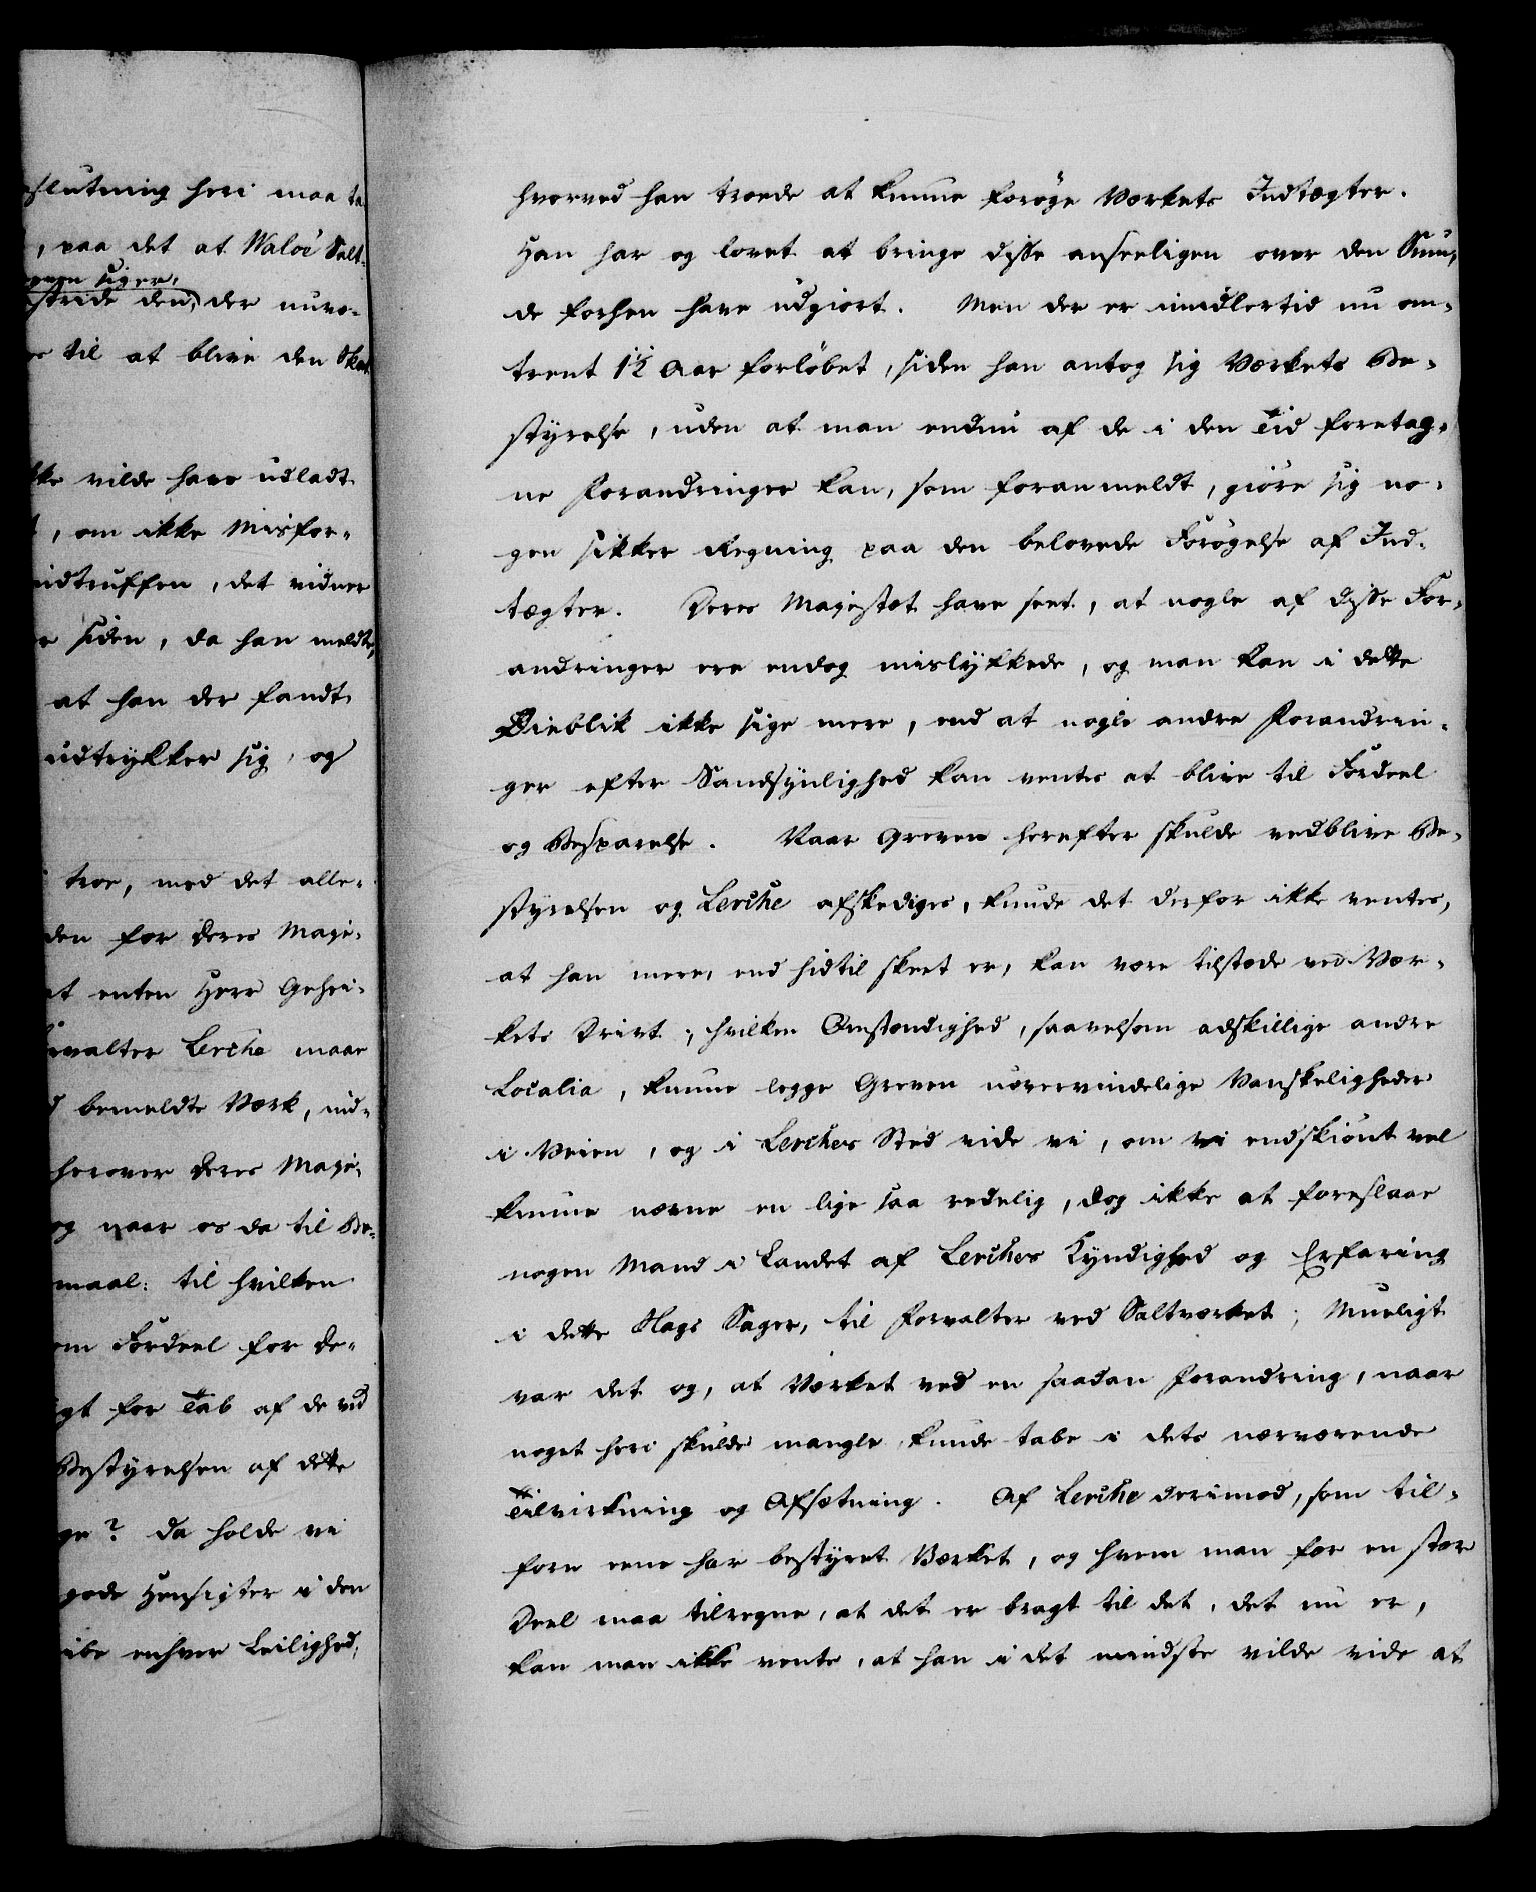 slutning heri maa ta
, paa det at Waløe Salt-
even siger,
stride den, der nuvæ-
til at blive den Skat
ke vilde have udladt
, om ikke Misfor-
indtruffen, det vidner
siden, da han meldte,
at han der fandt
udtrykker sig, og
troe, med det alle-
den for Deres Maje-
at enten Herr Gehei-
rvalter Lerche maae
bemeldte Værk, ind-
herover Deres Maje-
og naar os da til Be-
maal: til hvilken
om Fordeel for De-
gt for Tab af de ved
Bestyrelsen af dette
ge? da holde vi
gode Hensigter i den
ibe enhver Leilighed,
hvorved han troede at kunne forøge Værkets Indtægter.
Han har og lovet at bringe disse anseeligen over den Sum,
de forhen have udgiort. Men der er imidlertid nu om-
trent 1½ Aar forløbet, siden han antog sig Værkets Be-
styrelse, uden at man endnu af de i den Tid foretag-
ne Forandringer kan, som foranmeldt, giøre sig no-
gen sikker Regning paa den belovede Forøgelse af Ind-
tægter. Deres Majestæt have seet, at nogle af disse For-
andringer ere endog mislykkede, og man kan i dette
Øieblik ikke sige mere, end at nogle andre Forandrin-
ger efter Sandsynlighed kan ventes at blive til Fordeel
og Besparelse. Naar Greven herefter skulde vedblive Be-
styrelsen og Lerche afskediges, kunde det derfor ikke ventes,
at han mere, end hidtil skeet er, kan være tilstæde ved Vær-
kets Drivt; hvilken Omstændighed, saavelsom adskillige andre
Localia, kunne legge Greven uovervindelige Vanskeligheder
i Veien, og i Lerches Sted vide vi, om vi endskiønt vel
kunne nævne en lige saa redelig, dog ikke at foreslaae
nogen Mand i Landet af Lerches Kyndighed og Erfaring
i dette Slags Sager, til Forvalter ved Saltværket; Mueligt
var det og, at Værket ved en saadan Forandring, naar
noget heri skulde mangle, kunde tabe i dets nærværende
Tilvirkning og Afsætning. Af Lerche derimod, som til-
forn eene har bestyret Værket, og hvem man for en stor
Deel maa tilregne, at det er bragt til det, det nu er,
kan man ikke vente, at han i det mindste vilde vide at